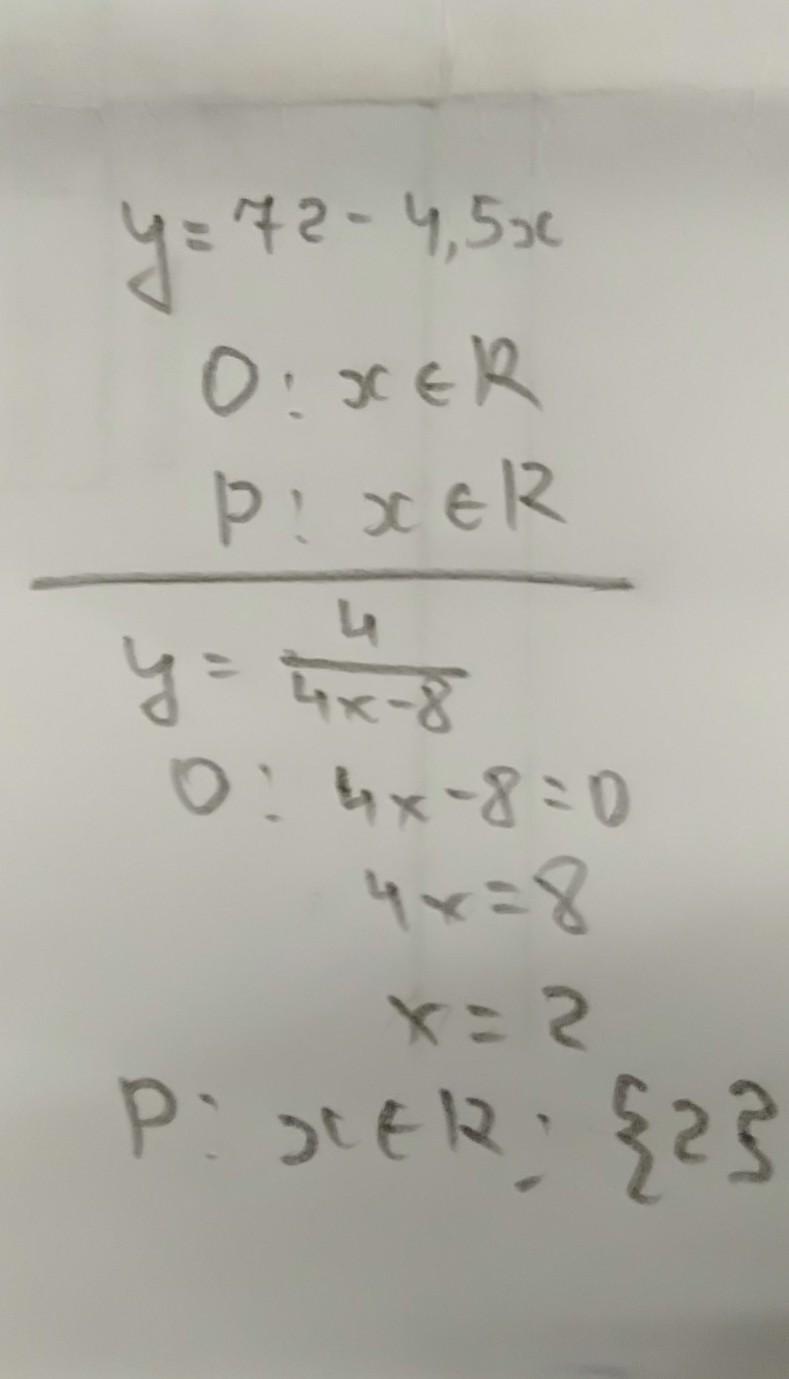 y = 72 - 4,5x
O: x ∈ R
P: x ∈ R
y = 4/(4x-8)
O: 4x - 8 = 0
4x = 8
x = 2
P: x ∈ R; {2}